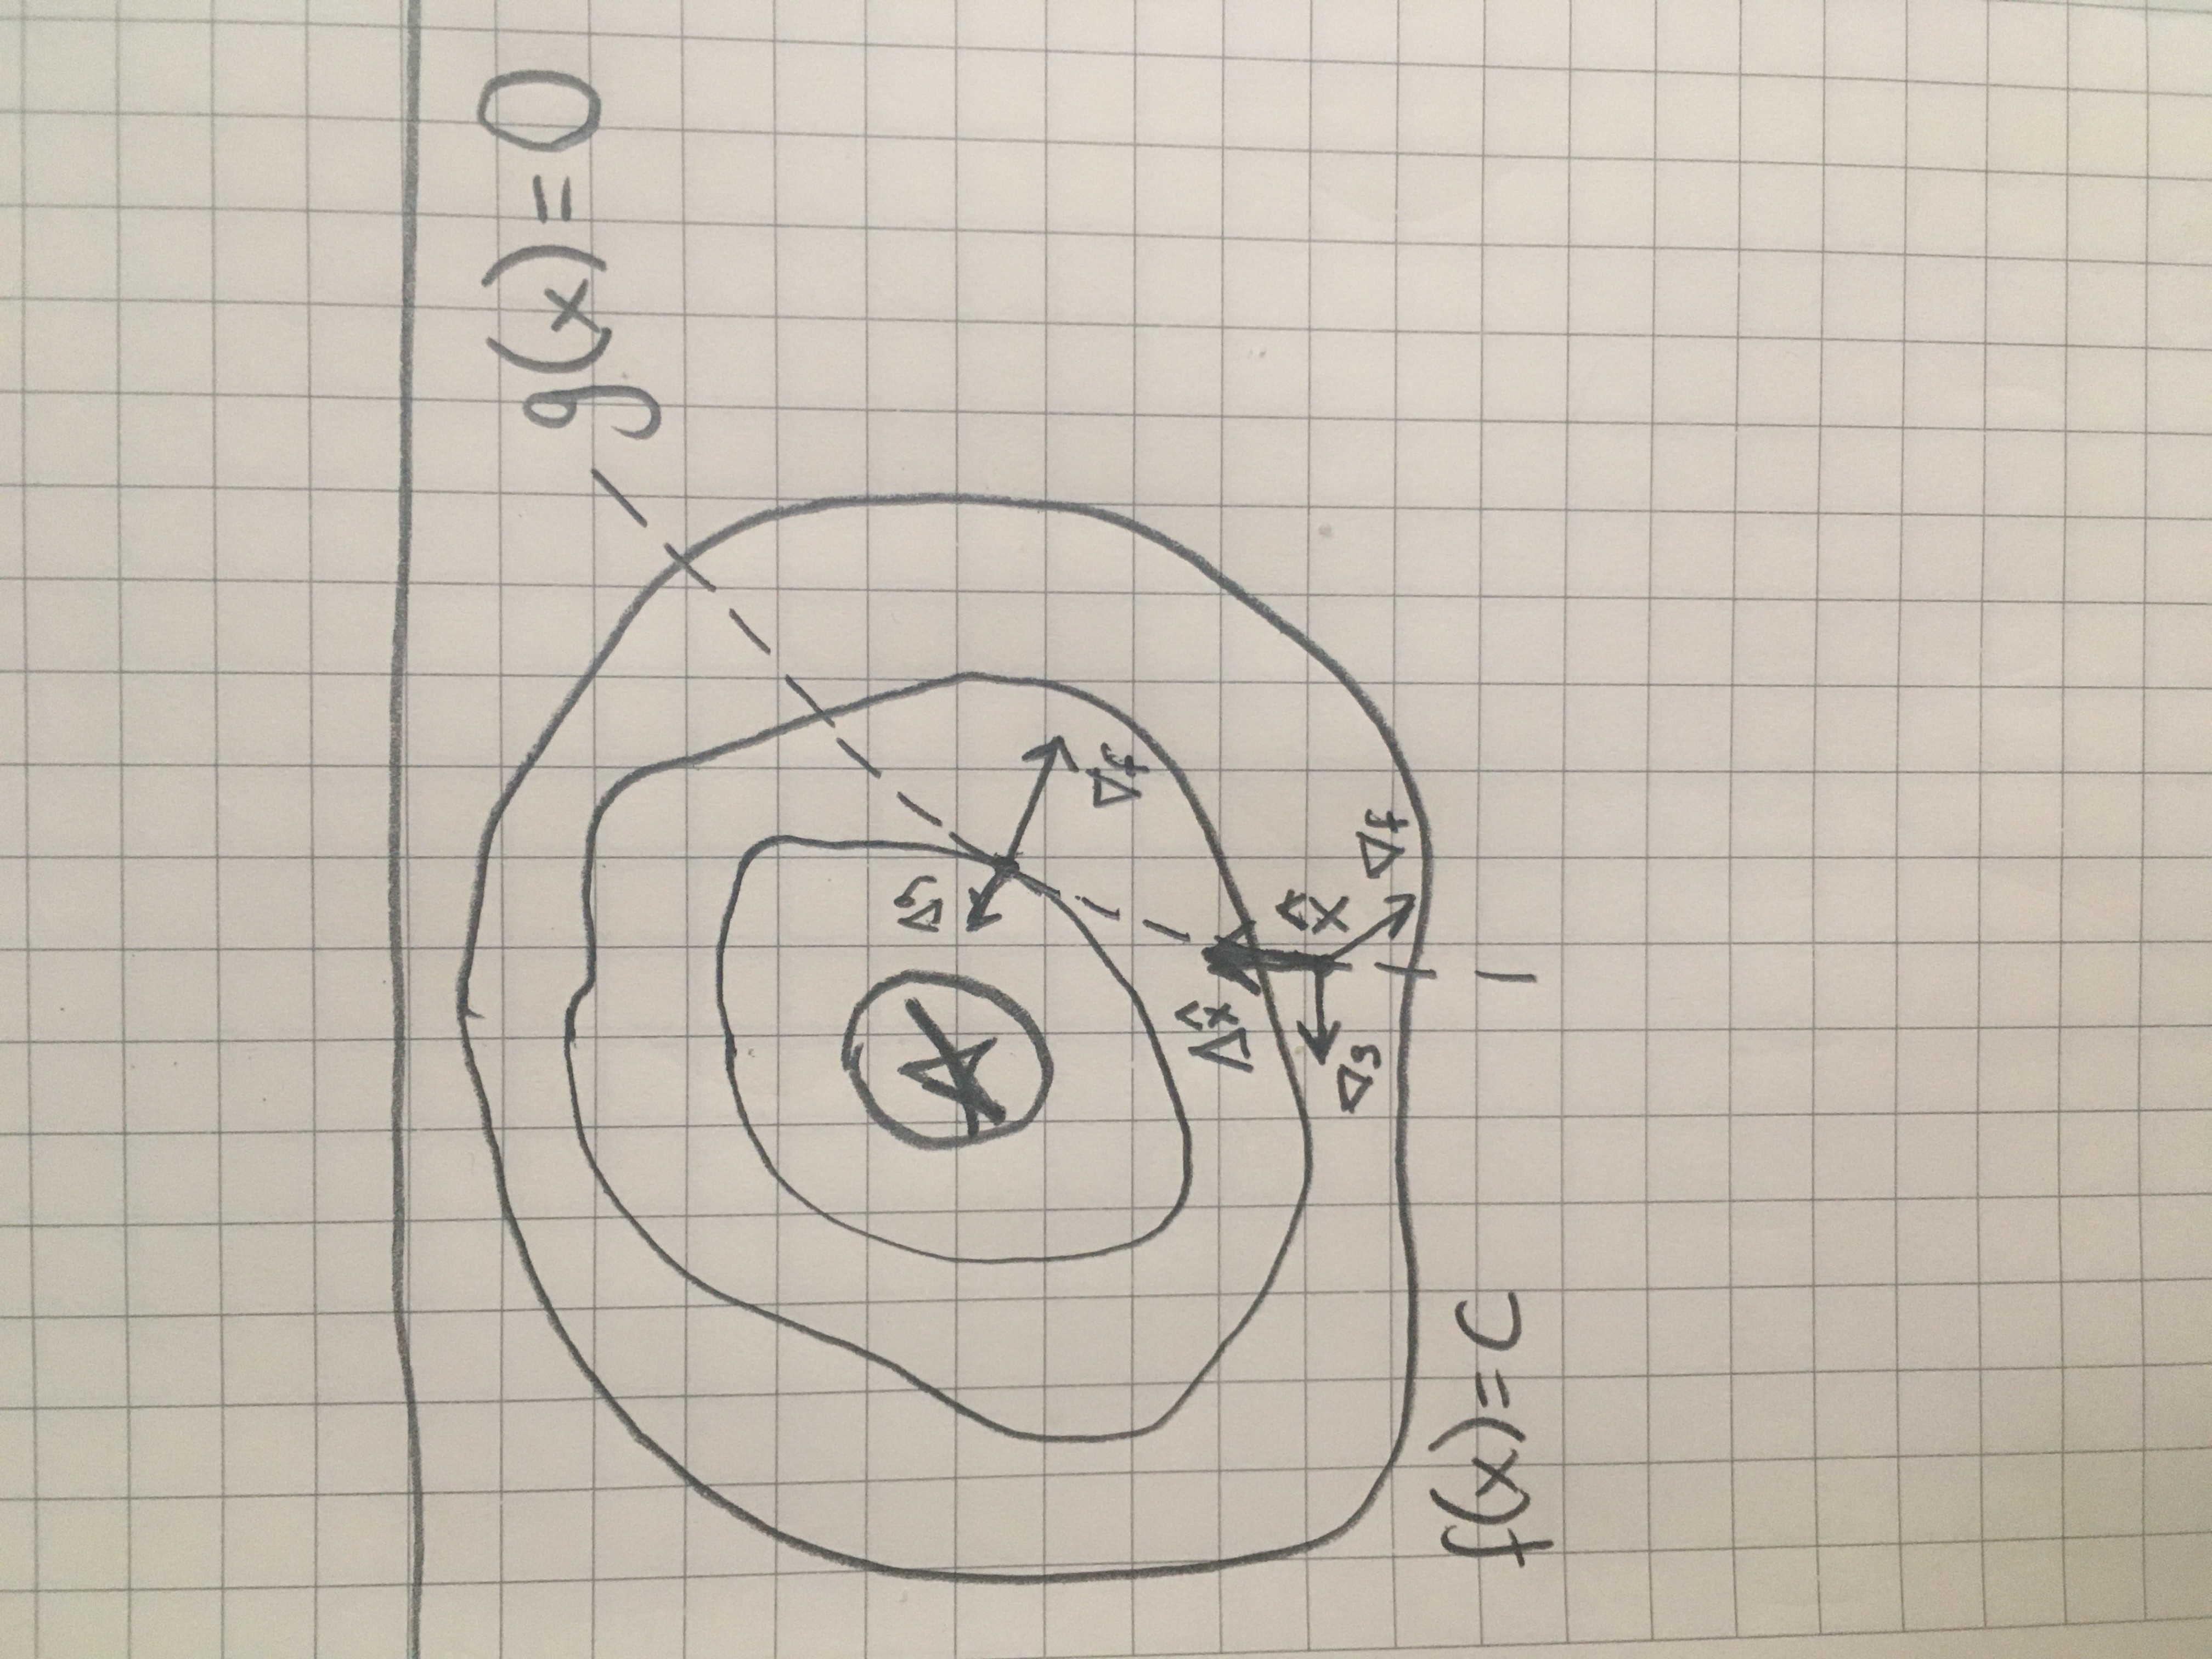 g(x)=0
A
∇g
∇f
Δx̂
x̂
∇g
∇f
f(x)=C